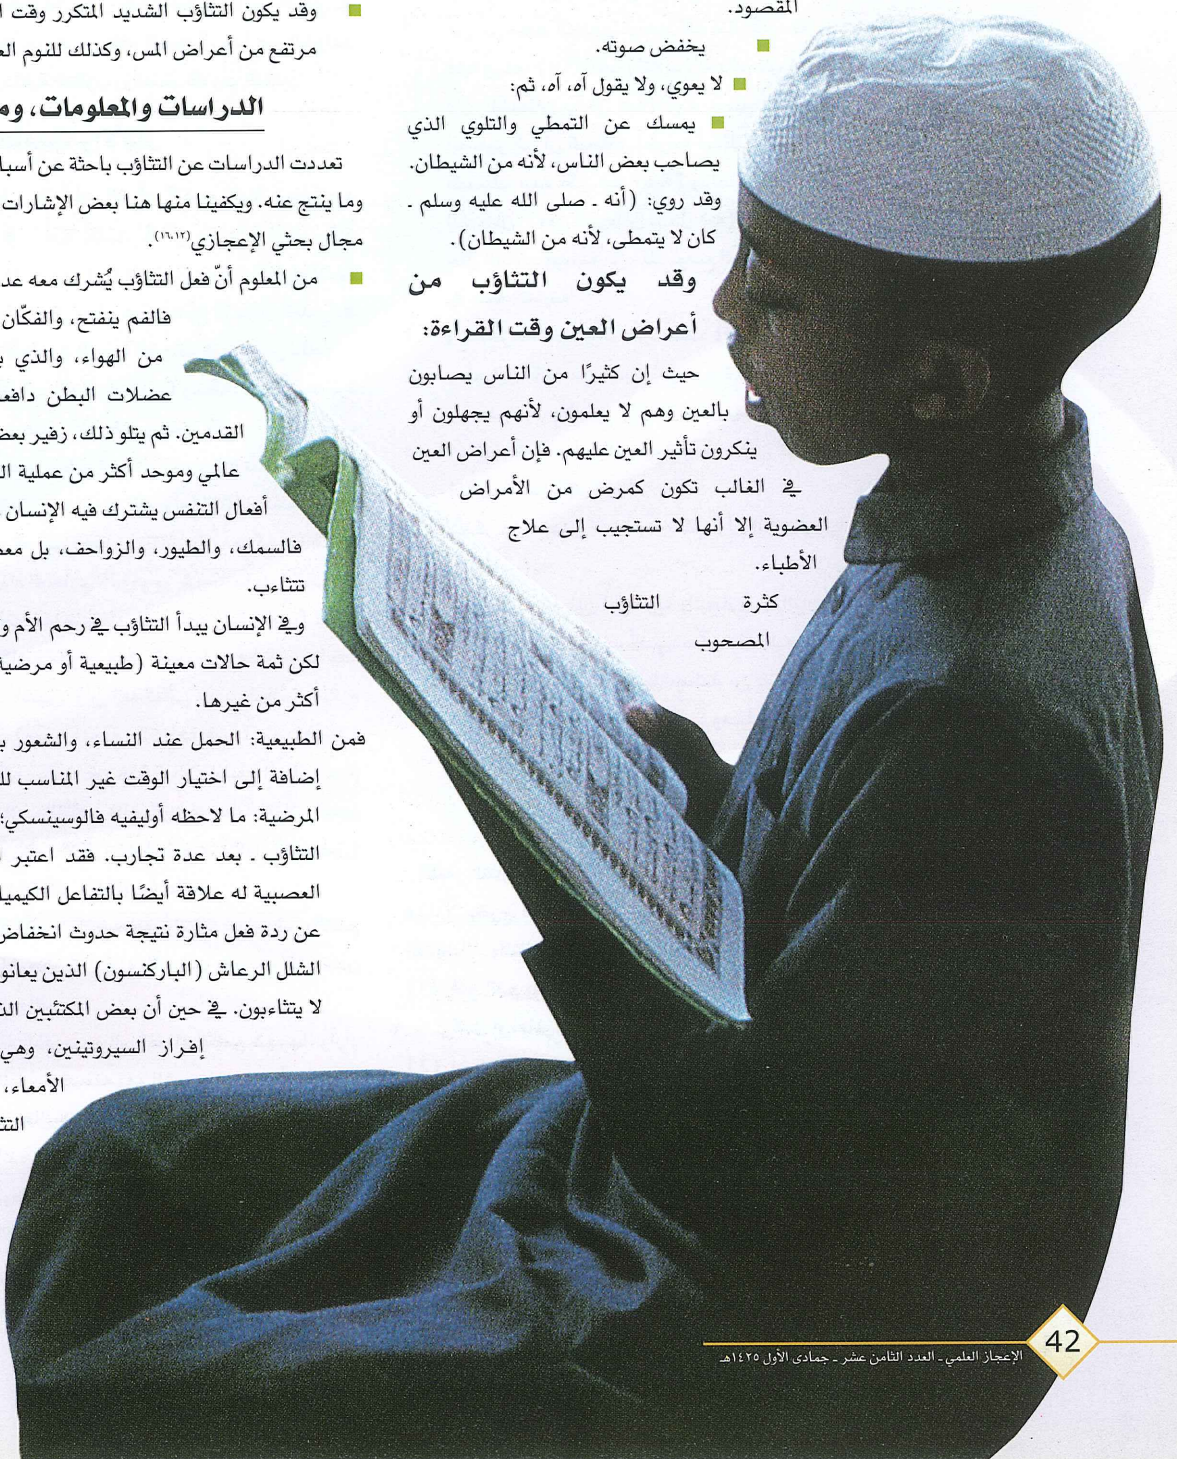 المقصود.
■ يخفض صوته.
■ لا يعوي، ولا يقول آه، آه، ثم:
■ يمسك عن التمطي والتلوي الذي
يصاحب بعض الناس، لأنه من الشيطان.
وقد روي: (أنه ـ صلى الله عليه وسلم ـ
كان لا يتمطى، لأنه من الشيطان).
وقد يكون التثاؤب من
أعراض العين وقت القراءة:
حيث إن كثيرًا من الناس يصابون
بالعين وهم لا يعلمون، لأنهم يجهلون أو
ينكرون تأثير العين عليهم. فإن أعراض العين
في الغالب تكون كمرض من الأمراض
العضوية إلا أنها لا تستجيب إلى علاج
الأطباء.
كثرة التثاؤب
المصحوب
■ وقد يكون التثاؤب الشديد المتكرر وقت
مرتفع من أعراض المس، وكذلك للنوم
الدراسات والمعلومات،
تعددت الدراسات عن التثاؤب باحثة عن
وما ينتج عنه. ويكفينا منها هنا بعض الإشارات
مجال بحثي الإعجازي(١٦،١٢).
■ من المعلوم أنّ فعل التثاؤب يُشرك معه
فالفم ينفتح، والفكّان
من الهواء، والذي
عضلات البطن
القدمين. ثم يتلو ذلك، زفير
عالمي وموحد أكثر من عملية
أفعال التنفس يشترك فيه الإنسان
فالسمك، والطيور، والزواحف، بل
تتثاءب.
وفي الإنسان يبدأ التثاؤب في رحم الأم
لكن ثمة حالات معينة (طبيعية أو مرضية
أكثر من غيرها.
فمن الطبيعية: الحمل عند النساء، والشعور
إضافة إلى اختيار الوقت غير المناسب
المرضية: ما لاحظه أوليفيه فالوسينسكي؛
التثاؤب ـ بعد عدة تجارب. فقد اعتبر
العصبية له علاقة أيضًا بالتفاعل
عن ردة فعل مثارة نتيجة حدوث انخفاض
الشلل الرعاش (الباركنسون) الذين
لا يتثاءبون. في حين أن بعض المكتئبين
إفراز السيروتينين، وهي
الأمعاء،
42
الإعجاز العلمي ـ العدد الثامن عشر ـ جمادى الأول ١٤٢٥هـ